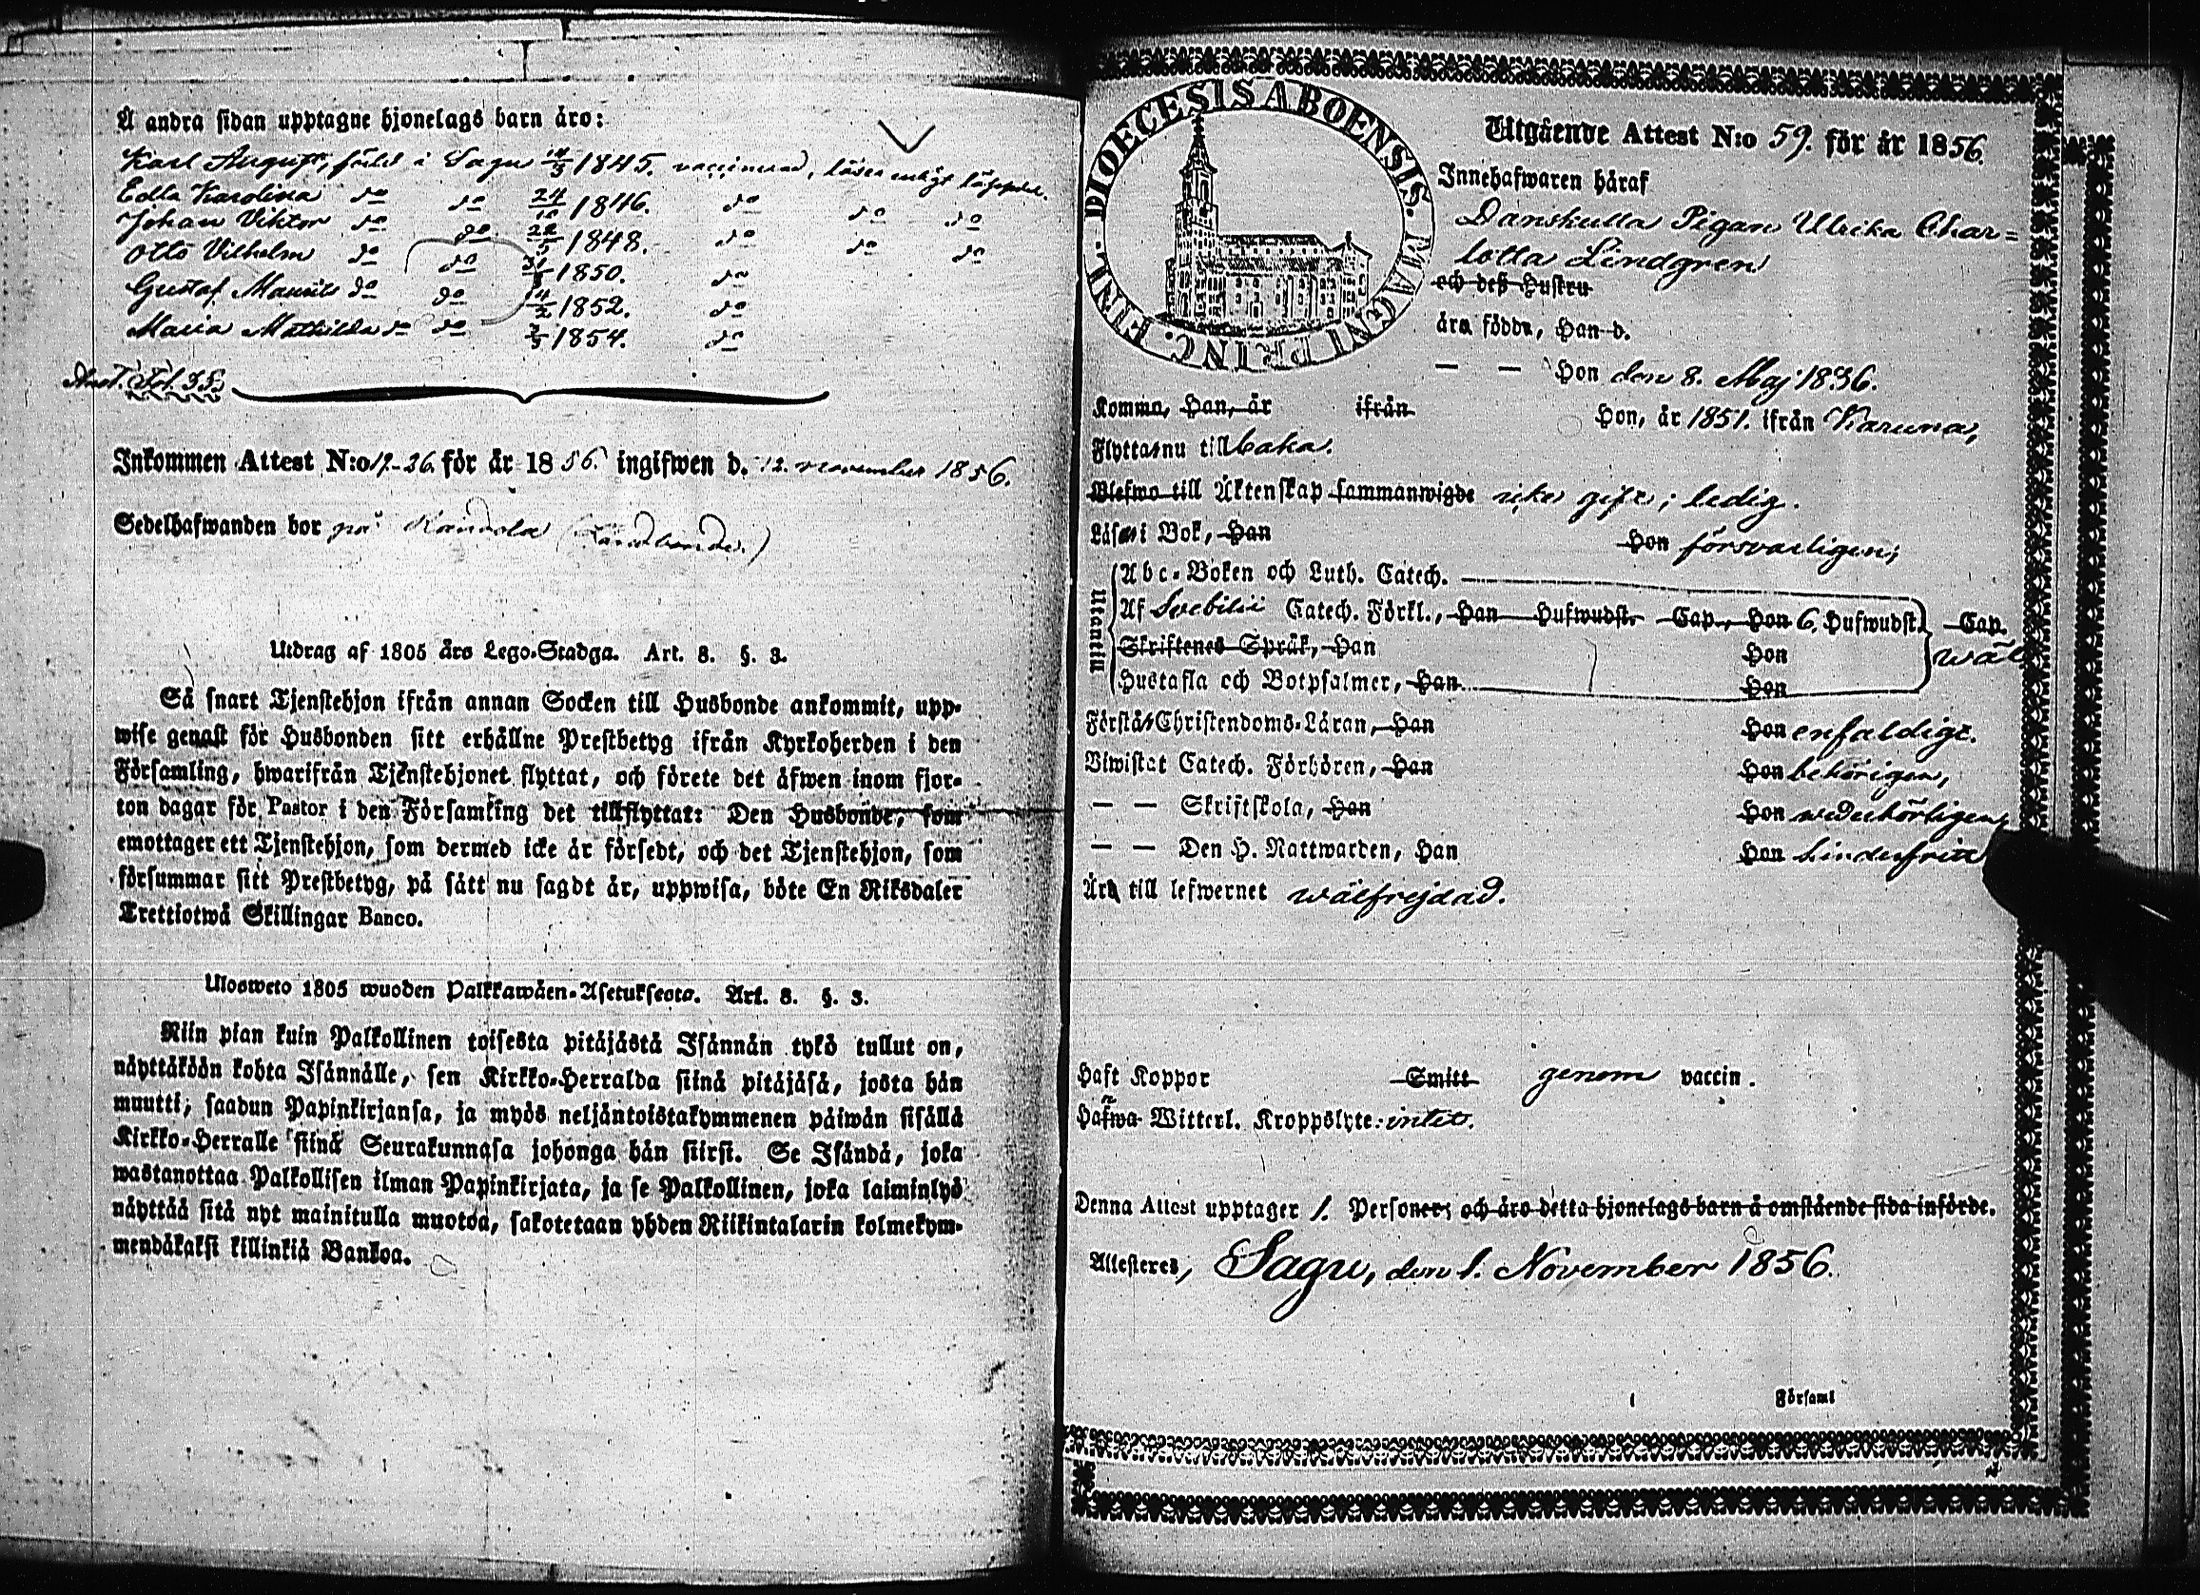 Å andra sidan upptagne hjonelags barn äro:
Karl August, född i Sagu 14/3 1845. vaccinerad, läser enligt läsepröf.
Edla Karolina do do 24/10 1846. do do do
Johan Viktor do do 22/5 1848. do do do
Otto Vilhelm do do 31/8 1850. do
Gustaf Maurits do do 4/2 1852. do
Maria Mathilda do do 2/5 1854. do
Fol. 35.
Inkommen Attest N:o 17-26. för år 1856. ingifwen d. 12. november 1856.
Sedelhafwanden bor på (Landbonde.)
Utdrag af 1805 års Lego-Stadga. Art. 8. §. 3.
Så snart Tjenstehjon ifrån annan Socken till Husbonde ankommit, upp-
wise genast för Husbonden sitt erhållne Prestbetyg ifrån Kyrkoherden i den
Församling, hwarifrån Tjenstehjonet flyttat, och förete det äfwen inom fjor-
ton dagar för Pastor i den Församling det tillflyttat: Den Husbonde, som
emottager ett Tjenstehjon, som dermed icke är försedt, och det Tjenstehjon, som
försummar sitt Prestbetyg, på sätt nu sagdt är, uppwisa, böte En Riksdaler
Trettiotwå Skillingar Banco.
Ulosweto 1805 wuoden Palkkawäen-Asetuksesta. Art. 8. §. 3.
Niin pian kuin Palkollinen toisesta pitäjästä Isännän tykö tullut on,
näyttäköön kohta Isännälle, sen Kirkko-Herralda siinä pitäjäsä, josta hän
muutti, saadun Papinkirjansa, ja myös neljäntoistakymmenen päiwän sisällä
Kirkko-Herralle siinä Seurakunnasa johonga hän siirsi. Se Isändä, joka
wastanottaa Palkollisen ilman Papinkirjata, ja se Palkollinen, joka laiminlyö
näyttää sitä nyt mainitulla muotoa, sakotetaan yhden Riikintalarin kolmekym-
mendäkaksi killinkiä Bankoa.
DIOECESIS ABOENSIS. MAGNI PRINC. FINL.
Utgående Attest N:o 59. för år 1856.
Innehafwaren häraf
Danskulla Pigan Ulrika Char=
lotta Lindgren
och deß Hustru
äro födde, Han d.
— — Hon den 8. Maj 1836.
Komma, Han, år ifrån Hon, år 1851. ifrån Karuna,
Flytta nu tillbaka.
Blefwo till Äktenskap sammanwigde icke gift; ledig.
Läsa i Bok, Han Hon försvarligen;
Utanela
Abc-Boken och Luth. Catech.
Af Svebilii Catech. Förkl., Han Hufwudst. Cap., Hon 6. Hufwudst. Cap.
Skriftenes Språk, Han Hon wäl
Hustafla och Botpsalmer, Han Hon
Förstå Christendoms-Läran, Han Hon enfaldigt.
Biwistat Catech. Förhören, Han Hon behörigen,
— — Skriftskola, Han Hon wederbörligen,
— — Den H. Nattwarden, Han Hon hinderfritt
Äro till lefwernet wälfrejdad.
Haft Koppor Smitt genom vaccin.
Hafwa Witterl. Kroppslyte: intet.
Denna Attest upptager 1. Personer; och äro detta hjonelags barn å omstående sida införde.
Attesteres, Sagu, den 1. November 1856.
Församl